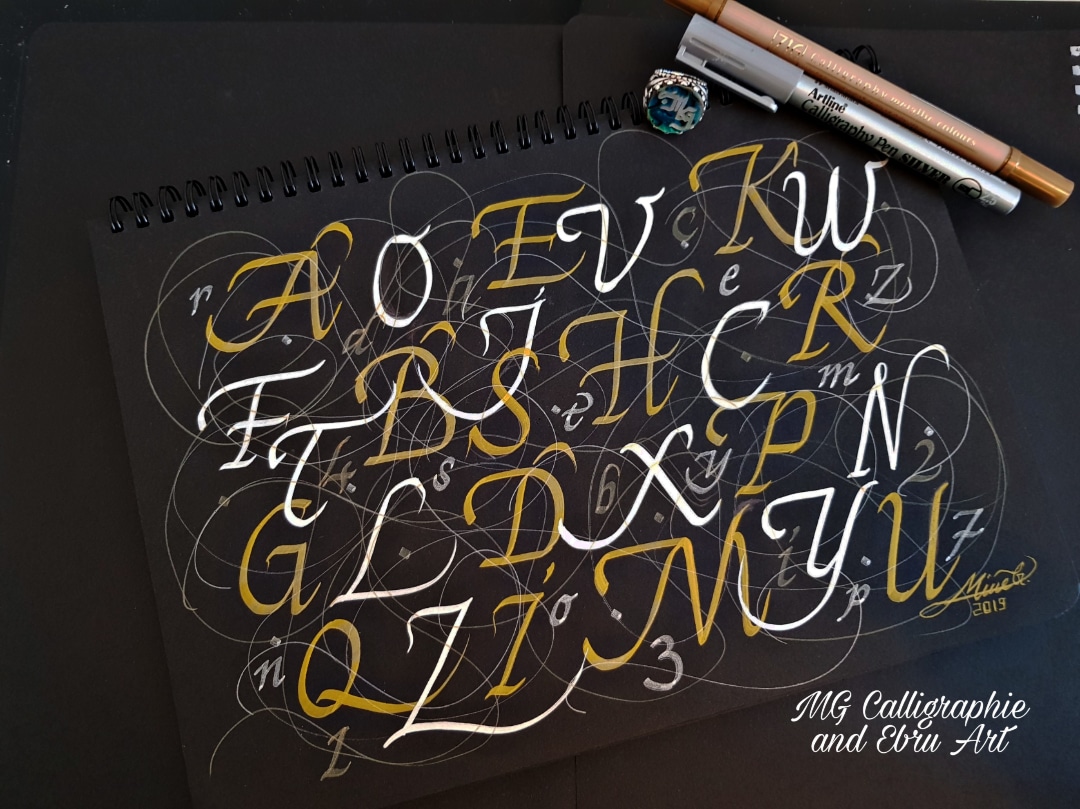 ZIG Calligraphy metallic colours
Artline
Calligraphy Pen SILVER
MG
K W
E V
c
A O
n
e
R Z
r
J
H
C
d
m
F
B
S
e
P
N
T
4
s
X
y
2
b
G
L
D
M
i
Y
U
7
p
Q
Z
I
o
3
n
1
2019
MG Calligraphie
and Ebru Art